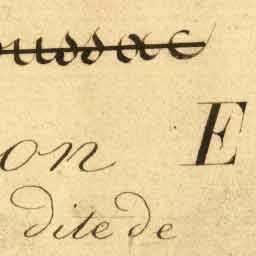 oussac
on E
dite de